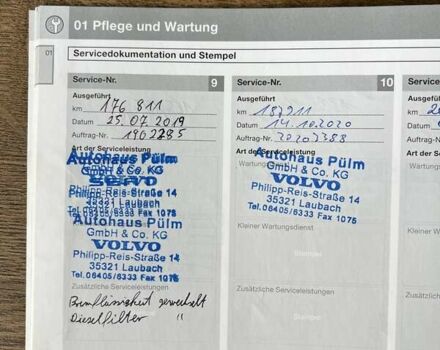 01 Pflege und Wartung
01
Servicedokumentation und Stempel
Service-Nr. 9
Ausgeführt
km 176 811
Datum 25.07.2019
Auftrag-Nr. 1902285
Art der Serviceleistung
Autohaus Pülm
GmbH & Co. KG
VOLVO
Philipp-Reis-Straße 14
35321 Laubach
Tel. 06405/6333 Fax 1075
Autohaus Pülm
GmbH & Co. KG
VOLVO
Philipp-Reis-Straße 14
35321 Laubach
Tel. 06405/6333 Fax 1075
Zusätzliche Serviceleistungen
Bremflüssigkeit gewechselt
Dieselfilter "
Service-Nr. 10
Ausgeführt
km 187911
Datum 14.10.2020
Auftrag-Nr. 20203388
Art der Serviceleistung
Autohaus Pülm
GmbH & Co. KG
VOLVO
Philipp-Reis-Straße 14
35321 Laubach
Tel. 06405/6333 Fax 1075
Kleiner Wartungsdienst
Stempel
Zusätzliche Serviceleistungen
Stempel
Service-Nr.
Ausgeführt
km
Datum
Auftrag-Nr.